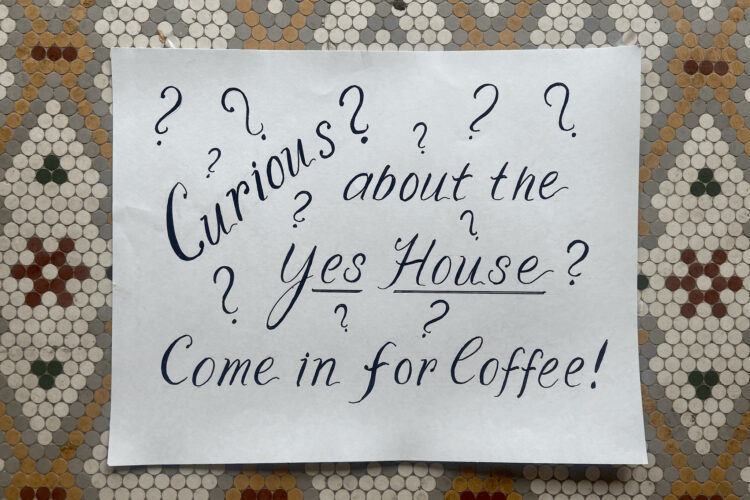 ? ? ? ? ? ?
? Curious about the
? ?
? Yes House ?
? ?
Come in for Coffee!